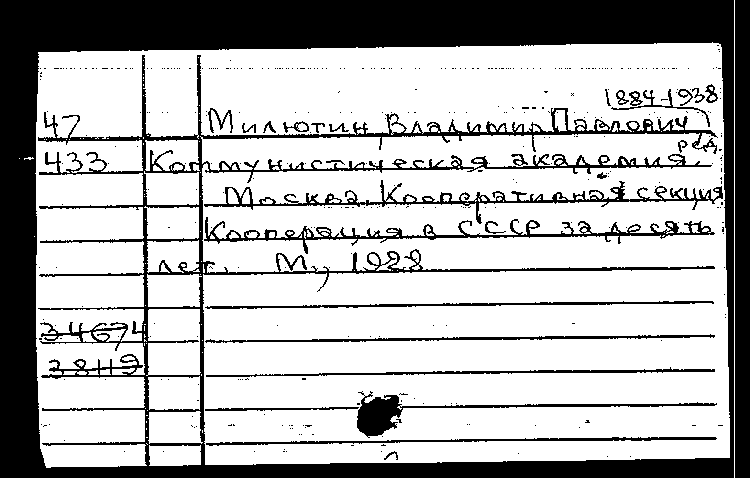 1884-1938
47 Милютин, Владимир Павлович
ред.
433 Коммунистическая академия.
Москва. Кооперативная секция
Кооперация в СССР за десять
лет. М., 1928
34674
38119